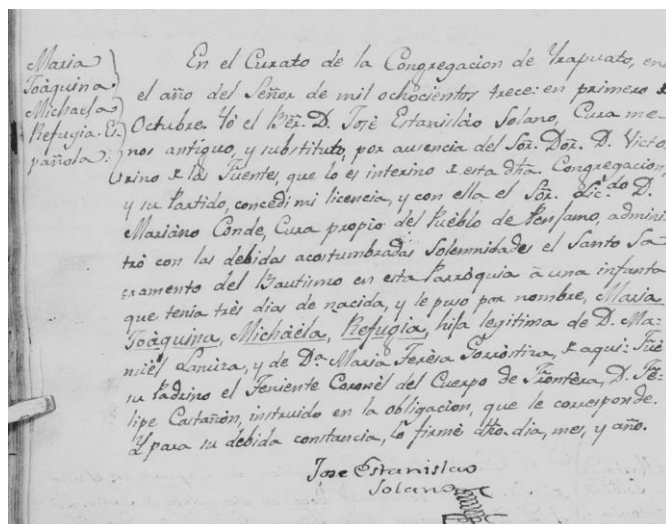 Maria
Joâquina
Michaela
Refugia. Es
pañola.
En el Curato de la Congregacion de Yrapuato, en
el año del Señor de mil ochòcientos trece: en primero de
Octubre. Yó el Bèr. D. Josè Estanislào Solano, Cura me=
nos antiguo, y substituto, por ausencia del Sòr. Dòr. D. Victo
rino de las Fuentes, que lo es interino de esta dha. Congregacion,
y su Partido, concedi mi licencia, y con ella el Sòr. Lic.do D.
Mariàno Conde, Cura propio del Puèblo de Penjamo, admini
trò con las debidas acostumbradas Solemnidades el Santo Sa=
cramento del Bautismo en esta Parròquia â una infanta
que tenia très dias de nacida, y le puso por nombre, Maria
Joâquina, Michaèla, Refugia, hija legitima de D. Ma=
nuèl Lanuza, y de Da. Maria Terèsa Gorròstiza, de aqui: Fuè
su Padrino el Teniente Coronèl del Cuerpo de Frontèra, D. Fe=
lipe Castañòn, instruido en la obligacion, que le corresponde.
Y para su debida constancia, lo firmè dho. dia, mes, y año.
Jose Estanislao
Solano